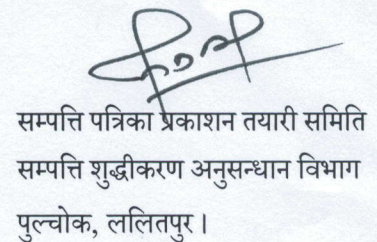 सम्पत्ति पत्रिका प्रकाशन तयारी समिति
सम्पत्ति शुद्धीकरण अनुसन्धान विभाग
पुल्चोक, ललितपुर।